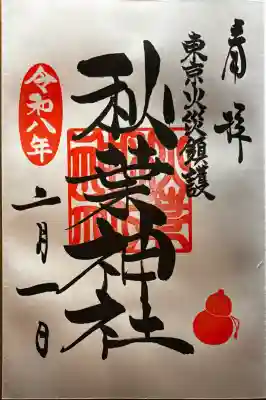 奉拝
東京火災鎮護
秋葉神社
令和八年
二月一日